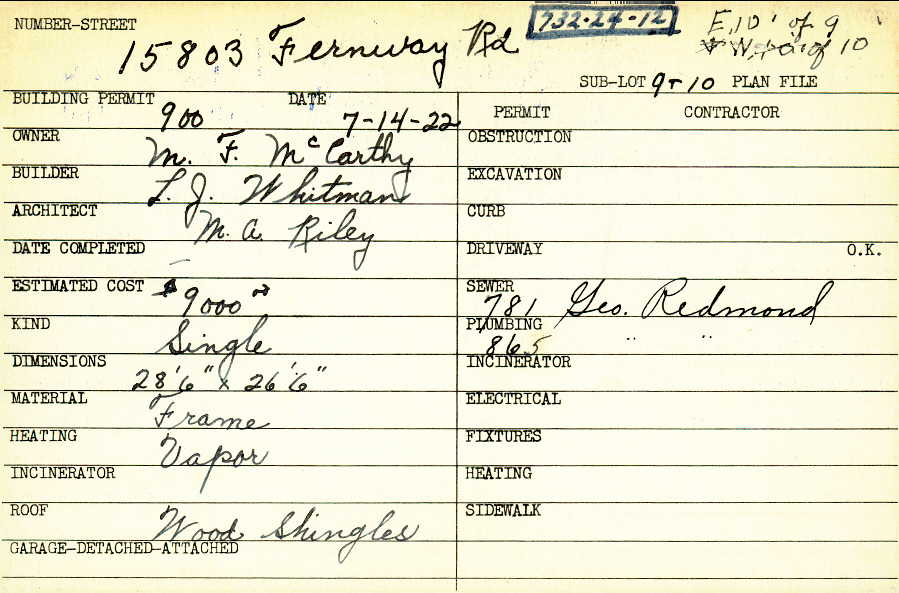 NUMBER-STREET
15803 Fernway Rd
732-24-12
E, 10' of 9
W, of 10
SUB-LOT 9-10 PLAN FILE
BUILDING PERMIT 900 DATE 7-14-22
OWNER M. F. McCarthy
BUILDER L. J. Whitman
ARCHITECT M. A. Riley
DATE COMPLETED –
ESTIMATED COST $9000
KIND Single
DIMENSIONS 28'6" x 26'6"
MATERIAL Frame
HEATING Vapor
INCINERATOR
ROOF Wood Shingles
GARAGE-DETACHED-ATTACHED
PERMIT CONTRACTOR
OBSTRUCTION
EXCAVATION
CURB
DRIVEWAY O.K.
SEWER 781 Geo. Redmond
PLUMBING 865 " "
INCINERATOR
ELECTRICAL
FIXTURES
HEATING
SIDEWALK